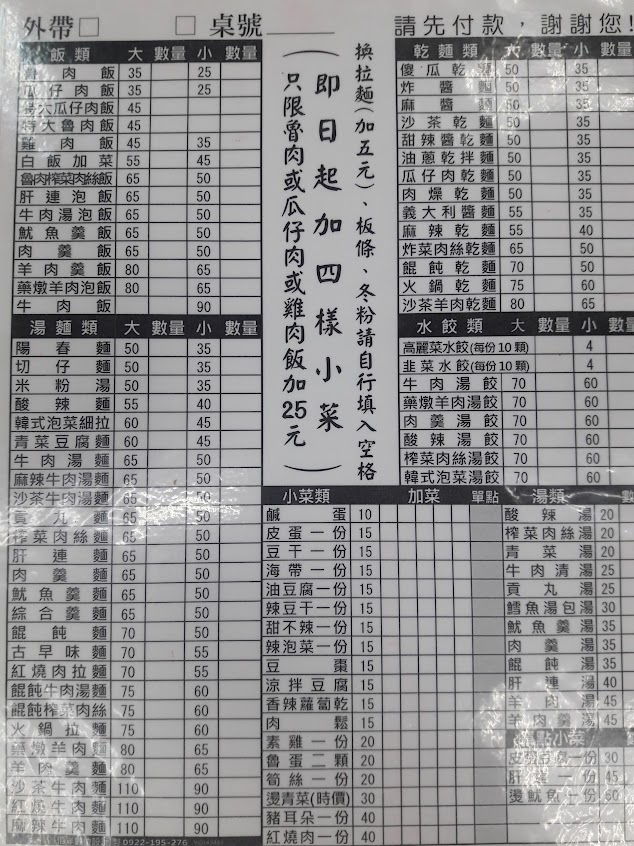 外帶□ □桌號
請先付款，謝謝您!
飯類 大 數量 小 數量
肉飯 35 25
瓜仔肉飯 35 25
特大瓜仔肉飯 45
特大魯肉飯 45
雞肉飯 45 35
白飯加菜 55 45
魯肉榨菜肉絲飯 65 50
肝連泡飯 65 50
牛肉湯泡飯 65 50
魷魚羹飯 65 50
肉羹飯 65 50
羊肉羹飯 80 65
藥燉羊肉泡飯 80 65
牛肉飯 90
湯麵類 大 數量 小 數量
陽春麵 50 35
切仔麵 50 35
米粉湯 50 35
酸辣麵 55 40
韓式泡菜細拉 60 45
青菜豆腐麵 60 45
牛肉湯麵 65 50
麻辣牛肉湯麵 65 50
沙茶牛肉湯麵 65 50
貢丸麵 65 50
榨菜肉絲麵 65 50
肝連麵 65 50
肉羹麵 65 50
魷魚羹麵 65 50
綜合羹麵 65 50
餛飩麵 70 50
古早味麵 70 55
紅燒肉拉麵 70 55
餛飩牛肉湯麵 75 60
餛飩榨菜肉絲 75 60
火鍋拉麵 75 60
藥燉羊肉麵 80 65
羊肉羹麵 80 65
沙茶牛肉麵 110 90
紅燒牛肉麵 110 90
麻辣牛肉麵 110 90
0922-195-276
換拉麵(加五元)、板條、冬粉請自行填入空格
(即日起加四樣小菜)
只限魯肉或瓜仔肉或雞肉飯加25元
乾麵類 大 數量 小 數量
傻瓜乾麵 50 35
炸醬麵 50 35
麻醬麵 50 35
沙茶乾麵 50 35
甜辣醬乾麵 50 35
油蔥乾拌麵 50 35
瓜仔肉乾麵 50 35
肉燥乾麵 50 35
義大利醬麵 55 35
麻辣乾麵 55 40
炸菜肉絲乾麵 65 50
餛飩乾麵 70 50
火鍋乾麵 75 60
沙茶羊肉乾麵 80 65
水餃類 大 數量 小 數量
高麗菜水餃(每份10顆) 4
韭菜水餃(每份10顆) 4
牛肉湯餃 70 60
藥燉羊肉湯餃 70 60
肉羹湯餃 70 60
酸辣湯餃 70 60
榨菜肉絲湯餃 70 60
韓式泡菜湯餃 70 60
小菜類 加菜 單點
鹹蛋 10
皮蛋一份 15
豆干一份 15
海帶一份 15
油豆腐一份 15
辣豆干一份 15
甜不辣一份 15
辣泡菜一份 15
豆棗 15
涼拌豆腐 15
香辣蘿蔔乾 15
肉鬆 15
素雞一份 20
魯蛋二顆 20
筍絲一份 20
燙青菜(時價) 30
豬耳朵一份 40
紅燒肉一份 40
湯類 數
酸辣湯 20
榨菜肉絲湯 20
青菜湯 20
牛肉清湯 25
貢丸湯 25
鱈魚湯包湯 30
魷魚羹湯 35
肉羹湯 35
餛飩湯 35
肝連湯 40
羊肉湯 45
羊肉羹湯 45
點小菜
一份 30
肝連一份 45
燙魷魚一份 60